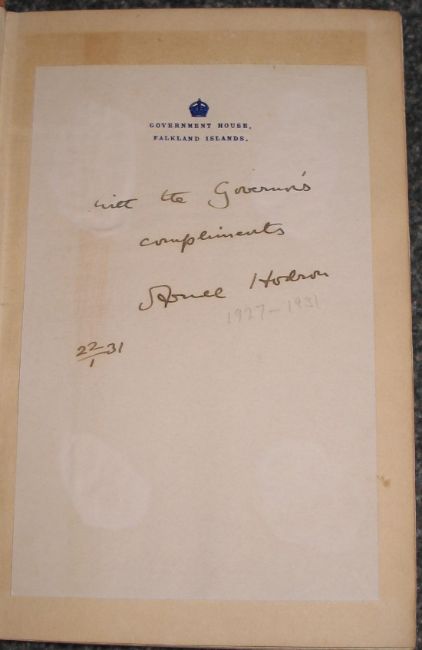 GOVERNMENT HOUSE,
FALKLAND ISLANDS.
with the Governor's
compliments
Arnold Hodson
1927-1931
22/1 31